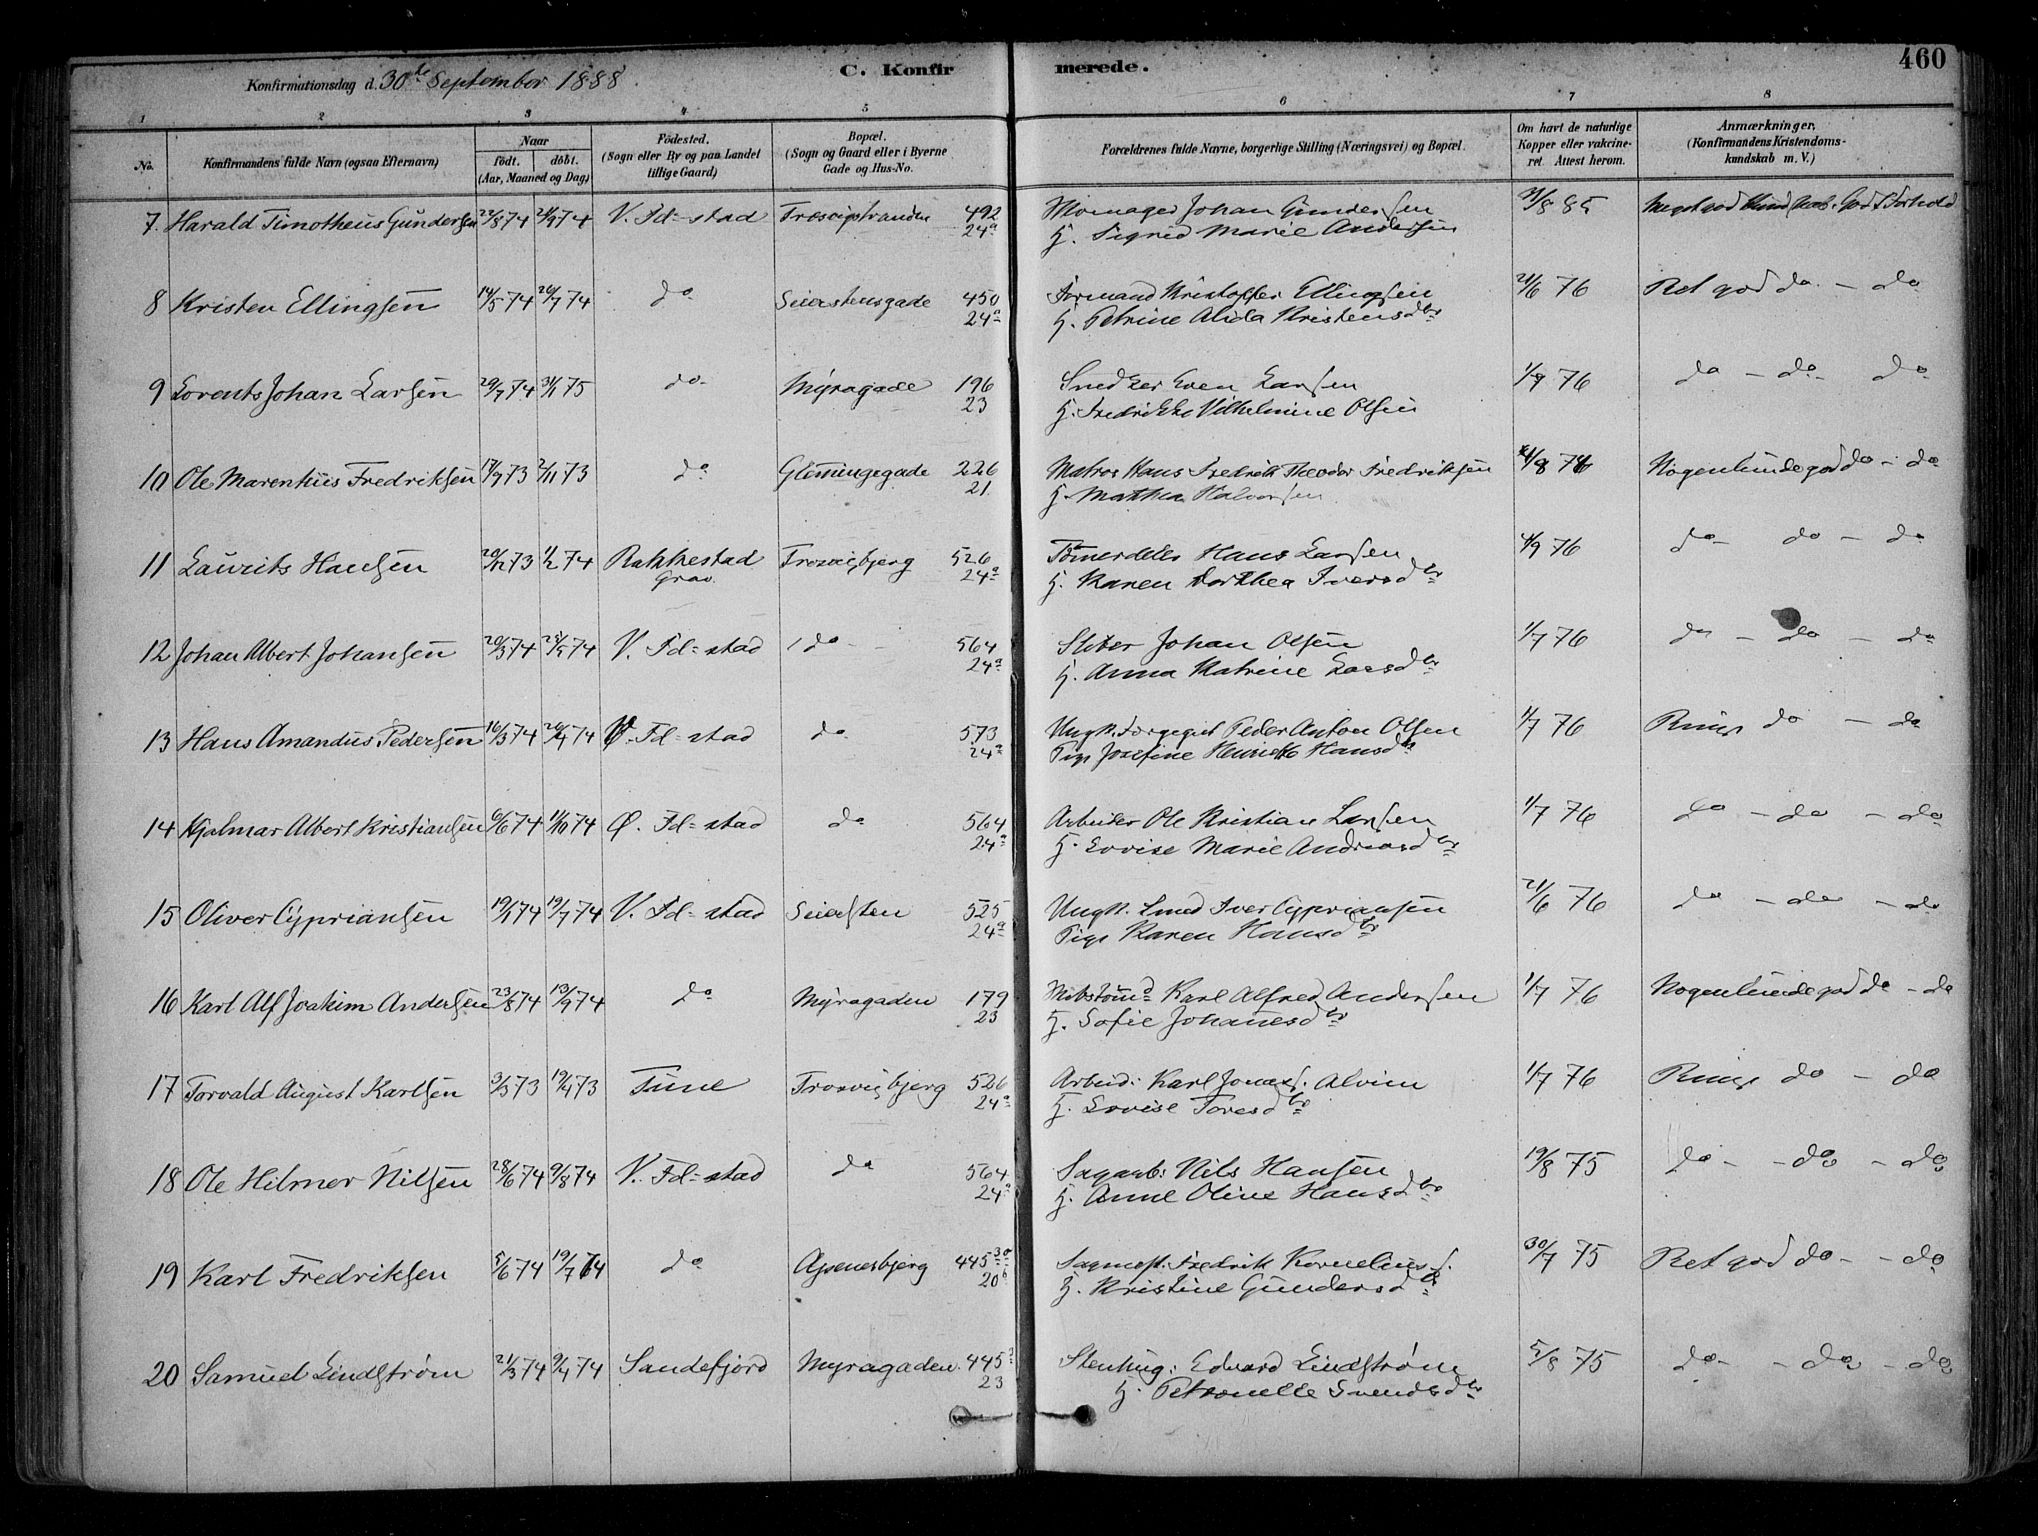 460
Konfirmationsdag d. 30te September 1888.
C. Konfirmerede.
1 2 3 4 5 6 7 8
No. Konfirmandens fulde Navn (ogsaa Efternavn) Naar født. døbt. (Aar, Maaned og Dag) Fødested. (Sogn eller By og paa Landet tillige Gaard) Bopæl. (Sogn og Gaard eller i Byerne Gade og Hus-No. Forældrenes fulde Navne, borgerlige Stilling (Næringsvei) og Bopæl. Om havt de naturlige Kopper eller vakcineret. Attest herom. Anmærkninger, (Konfirmandens Kristendomskundskab m. V.)
7. Harald Timotheus Gundersen 22/8 74 21/9 74 V. Fd=stad 492 Johan Gundersen 31/8 85
24a H. Sigrid Marie Andersen
8 Kristen Ellingsen 14/5 74 26/7 74 do Seierstensgade 450 Formand Kristoffer Ellingsen 21/6 76 Ret god do - do
24a H. Petrine Alida Kristensdtr
9 Lorents Johan Larsen 29/7 74 31/1 75 do Myragade 196 Snedker Even Larsen 1/9 76 do - do - do
23 H. Fredrikke Vilhelmine Olsen
10 Ole Marenius Fredriksen 17/9 73 2/11 73 do Glemmingegade 226 Matros Hans Fredrik Theodor Fredriksen Nogenlunde god do - do
21. H. Mathea Halvorsen
11 Laurits Hansen 20/12 73 1/2 74 Rakkestad Trosvigbjerg 526 Hans Larsen 4/9 76 do - do - do
Grav. 24a H. Karen Dorthea Iversdtr
12 Johan Albert Johansen 20/3 74 25/5 74 V. Fd=stad do 564 Johan Olsen 1/7 76 do - do - do
24a H. Anna Katrine Larsdtr
13 Hans Amandus Pedersen 16/3 74 26/4 74 Fd=stad do 573 Ungk. Peder Anton Olsen 1/7 76 Ringe do - do
24a Pige Josefine Henriette Hansdtr
14 Hjalmar Albert Kristiansen 6/6 74 11/10 74 Ø. Fd=stad do 564 Arbeider Ole Kristian Larsen 1/7 76 do - do - do
24a H. Lovise Marie Andreasdtr
15 Oliver Cypriansen 19/1 74 19/7 74 V. Fd=stad Seiersten 525 Ungk. Smed Iver Cypriansen 21/6 76 do - do - do
24a Pige Karen Hansdtr
16 Karl Alf Joakim Andersen 23/8 74 13/9 74 do Myragaden 179 Karl Alfred Andersen 1/7 76 Nogenlunde god do - do
23 H. Sofie Johannesdtr
17 Torvald August Karlsen 3/3 73 19/4 73 Tune Trosvigbjerg 526 Arbeid: Karl Jonas s. Alvim 1/7 76 Ringe do - do
24a H. Lovise Toresdtr
18 Ole Hilmer Nilsen 28/6 74 9/8 74 V. Fd=stad do 564 Sagarb: Nils Hansen 19/8 75 do - do - do
24a H. Anne Oline Hansdtr
19 Karl Fredriksen 5/6 74 19/7 do 445 Sagmest. Fredrik Kornelius s. 30/7 75 Ret god do - do
20b H. Kristine Gundersdtr
20 Samuel Lindstrøm 21/3 74 9/4 74 Sandefjord Myragaden 445 Stenhug: Edvard Lindstrøm 5/8 75 do - do - do
23 H. Petronelle Svendsdtr